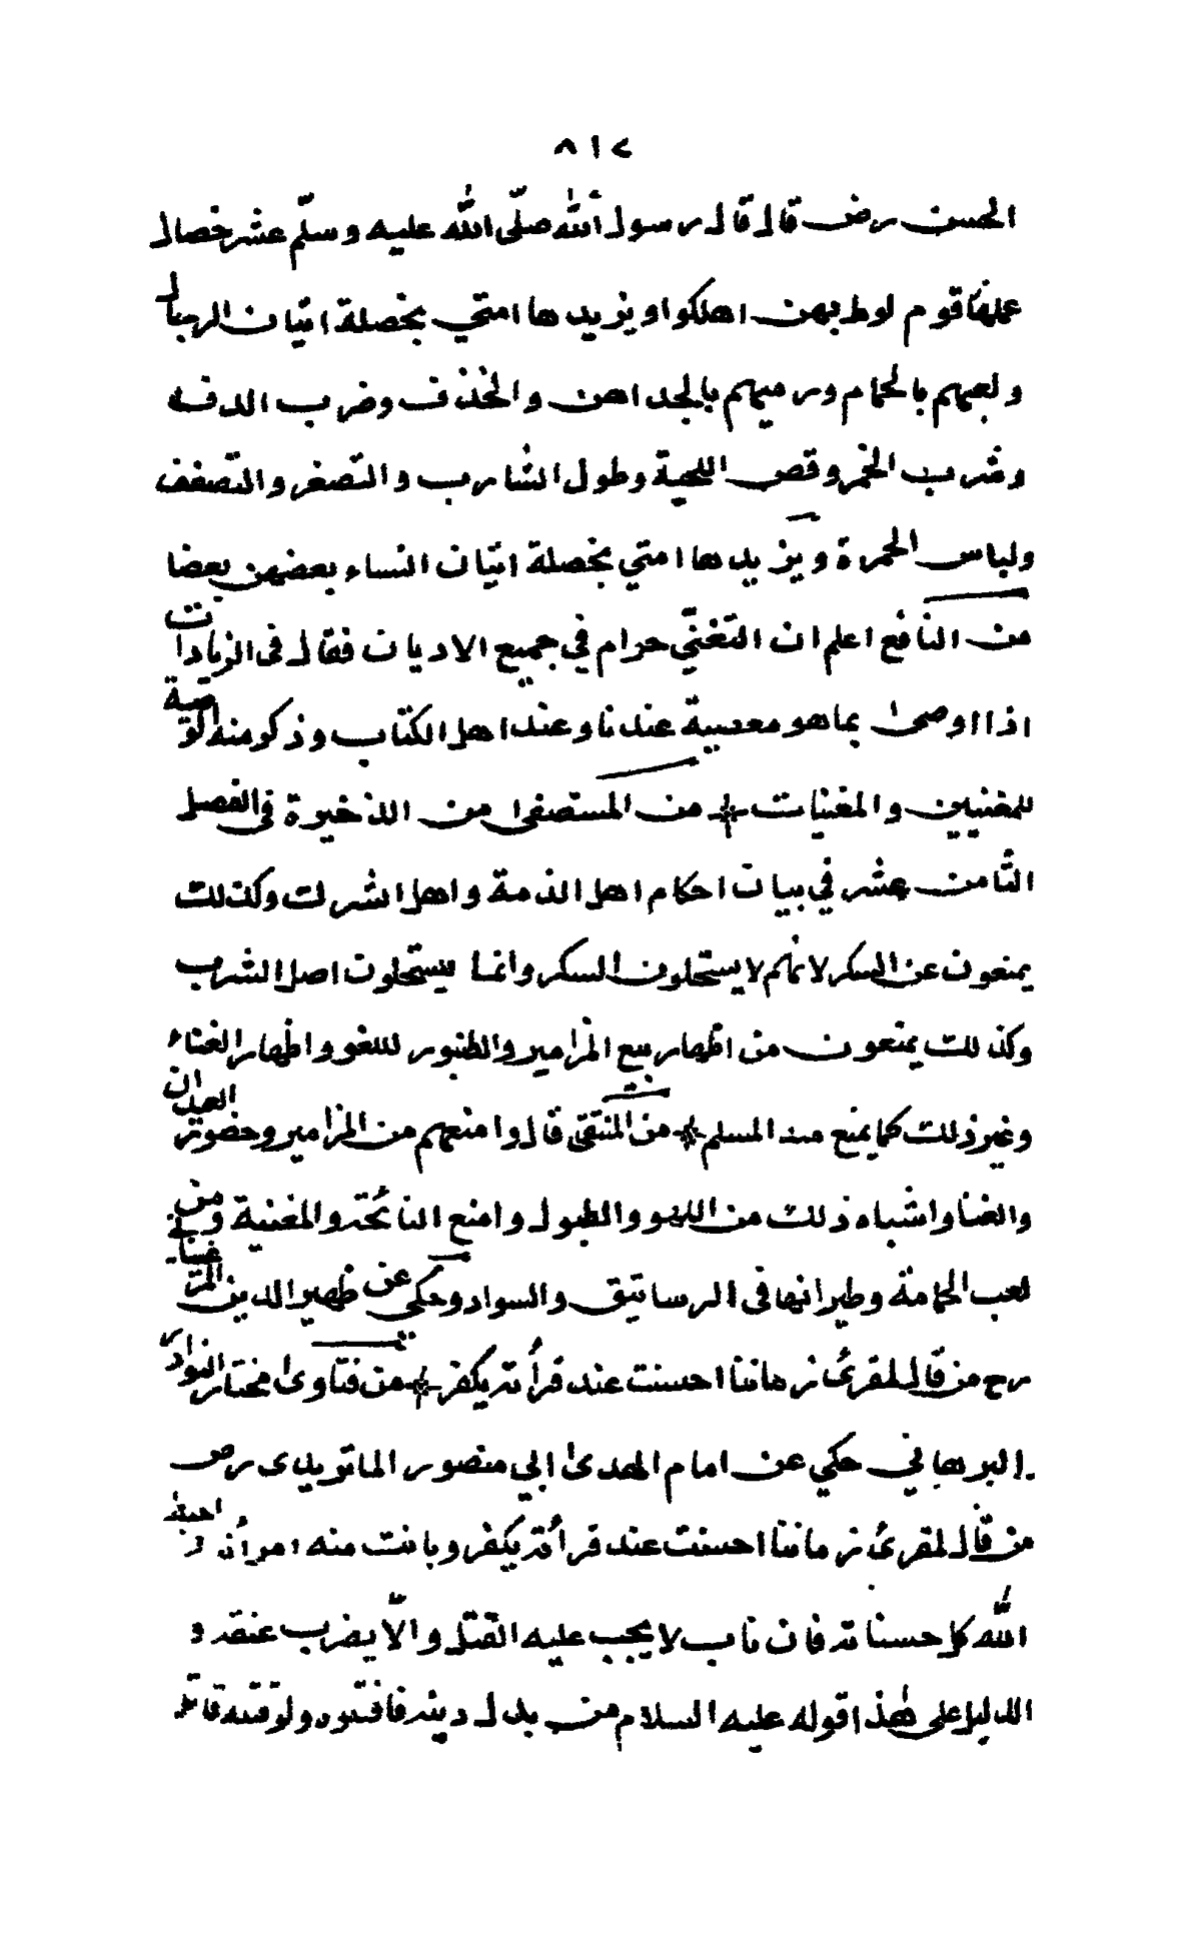 ٨١٧
الحسن رض قال قال رسول الله صلّى الله عليه وسلّم عشر خصال
عملها قوم لوط بهن اهلكوا ويزيدها امتي بخصلة اتيان الرجال
ولعبهم بالحمام ورميهم بالجداهن والخذف وضرب الدف
وشرب الخمر وقص اللحية وطول الشارب والتصفر والتصفف
ولباس الحمرة ويزيدها امتي بخصلة اتيان النساء بعضهن بعضا
من النافع اعلم ان التغنّي حرام في جميع الاديان فقال فى الزيادات
اذا اوصى بما هو معصية عندنا وعند اهل الكتاب وذكر منه الوصية
للمغنيين والمغنيات من المستصفى من الذخيرة فى الفصل
الثامن عشر في بيان احكام اهل الذمة واهل الشرك وكذلك
يمنعون عن السكر لانهم لا يستحلون السكر وانما يستحلون اصل الشرب
وكذلك يمنعون من اظهار بيع المزامير والطنبور للهو واظهار الغناء
وغير ذلك كما يمنع منه المسلم من المنتقى قال وامنعهم من المزامير وحضور العيدان
والغنا واشباه ذلك من اللهو والطبول وامنع النائحة والمغنية ومن
لعب الحمامة وطيرانها فى الرساتيق والسواد وحكى عن ظهير الدين المرغينانى
رح من قال لمقرئ زماننا احسنت عند قرأته يكفر من فتاوى مختار النوازل
البرهاني حكي عن امام الهدى ابي منصور الماتريدى رض
من قال لمقرئ زماننا احسنت عند قرأته يكفر وبانت منه امرأته واحبط
الله كل حسناته فان تاب لا يجب عليه القتل والّا يضرب عنقه و
الدليل على هذا قوله عليه السلام من بدل دينه فاقتلوه ولو قتله قاتل